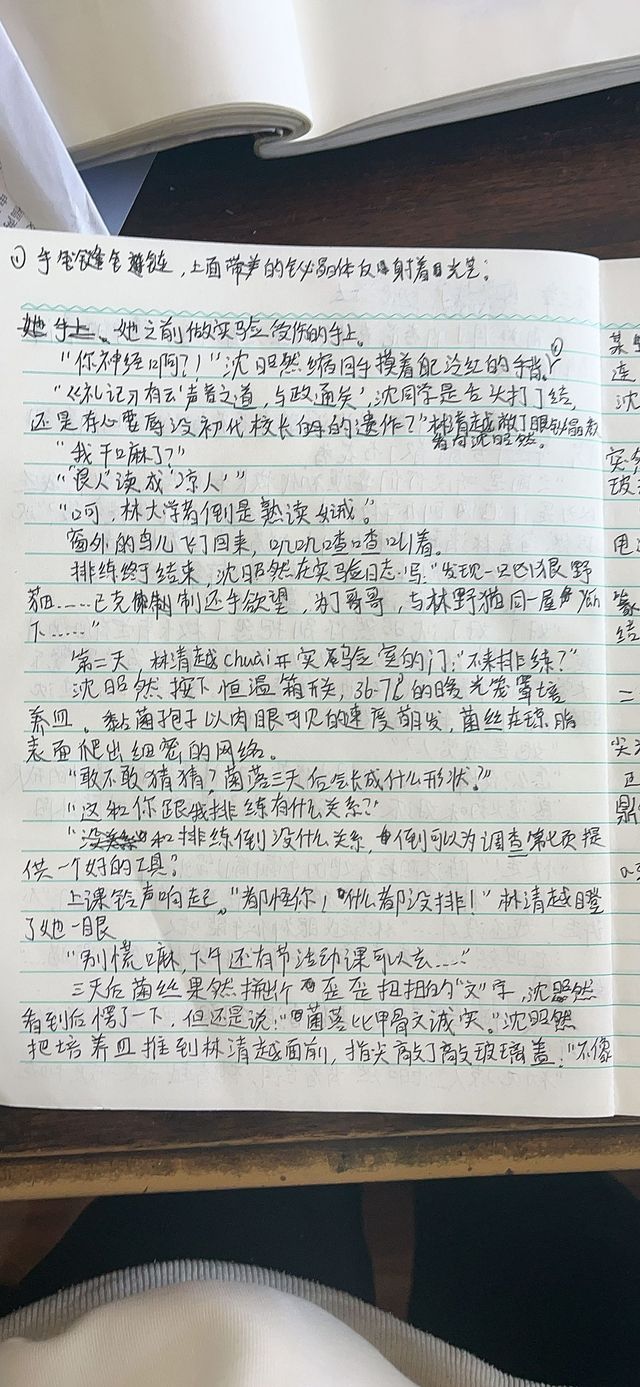 ① 手上,上面带的铋晶体反射着光芒:
她之前做实验受伤的手上。
"你神经啊?!"沈昭然缩回手摸着配泛红的手背。①
"《礼记》有云'声音之道,与政通矣',沈同学是舌头打了结,
还是存心要辱没初代校长的遗作?"林清越敲了眼铋晶
看向沈昭然。
"我干嘛了?"
"'良人'读成'凉人'"
"呵,林大学者倒是熟读女诫。"
窗外的鸟儿飞了回来,叽叽喳喳叫着。
排练终于结束,沈昭然在实验日志写:"发现一只凶狠野
猫……已克制制还手欲望,为了哥哥,与林野猫同一屋
下……"
第二天,林清越chuài开实验室的门:"不来排练?"
沈昭然按下恒温箱开关,36.7℃的暖光笼罩培
养皿。黏菌孢子以肉眼可见的速度萌发,菌丝在琼脂
表面爬出细密的网络。
"敢不敢猜猜?菌落三天后会长成什么形状?"
"这和你跟我排练有什么关系?"
"和排练倒没什么关系,倒可以为调查第七页提
供一个好的工具?
上课铃声响起。"都怪你,什么都没排!"林清越瞪
了她一眼
"别慌嘛,下午还有节活动课可以去……"
三天后菌丝果然拼出歪歪扭扭的"文"字,沈昭然
看到后愣了一下,但还是说:"菌落比甲骨文诚实。"沈昭然
把培养皿推到林清越面前,指尖敲了敲玻璃盖:"不像
某
连
沈
实
玻
甩
结
二
尖
正
鼎